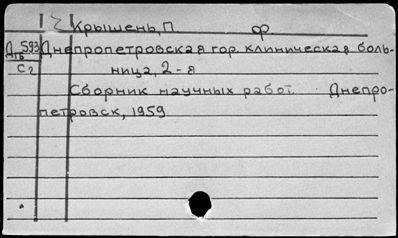 Крышень, П. ф.
Д593 Днепропетровская гор. клиническая боль-
Сг ница, 2-я
Сборник научных работ. Днепро-
петровск, 1959